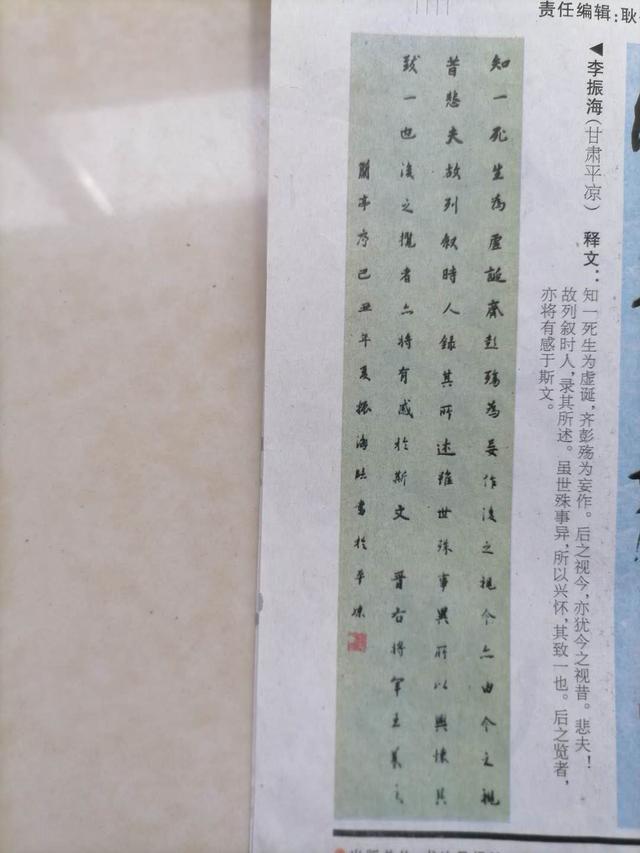 责任编辑:耿
◀李振海(甘肃平凉) 释文:
知一死生为虚诞,齐彭殇为妄作。后之视今,亦犹今之视昔。悲夫!
故列叙时人,录其所述。虽世殊事异,所以兴怀,其致一也。后之览者,
亦将有感于斯文。
知一死生為虛誕齊彭殤為妄作後之視今亦由今之視
昔悲夫故列叙時人錄其所述雖世殊事異所以興懷其
致一也後之攬者亦將有感於斯文 晉右將軍王羲之
蘭亭序己丑年夏振海書於平涼